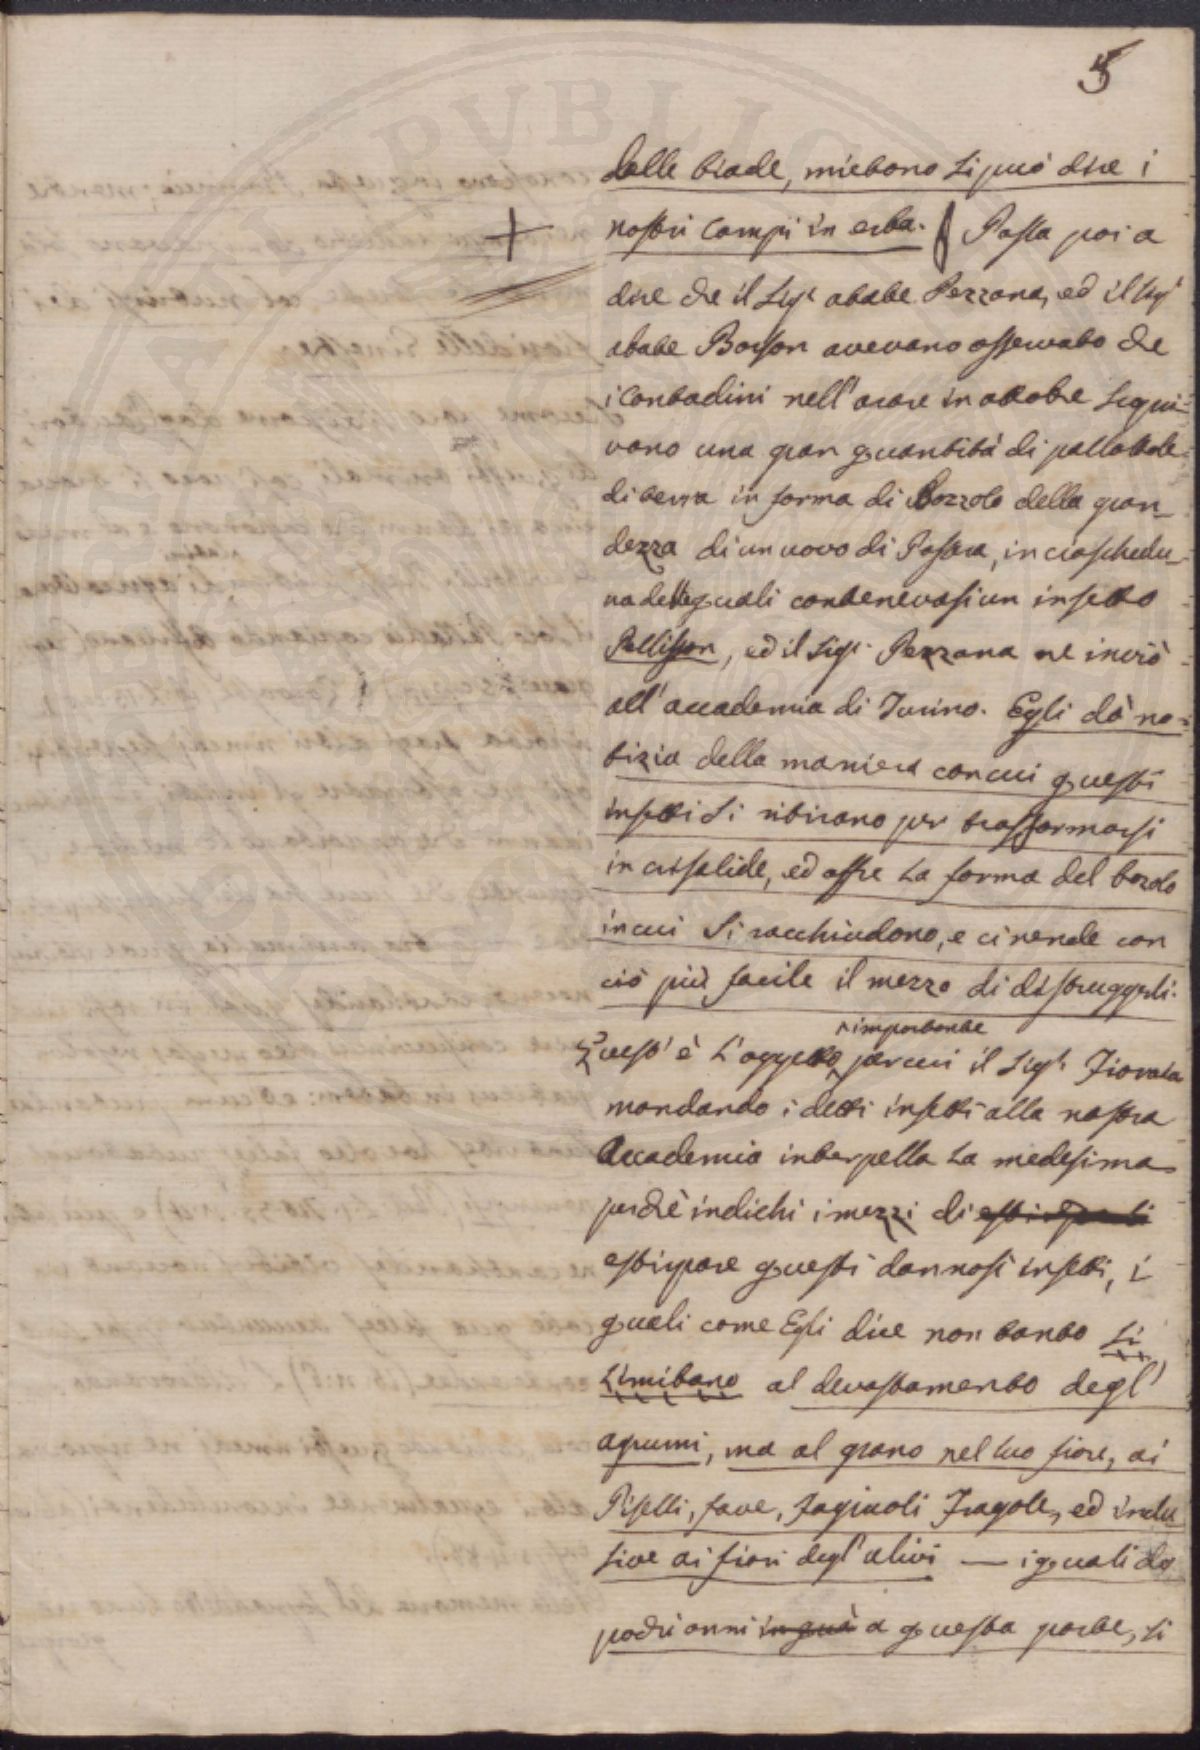 5
delle biade, mietono si può dire i
nostri campi in erba. Passa poi a
dire che il Sigr abate Pezzana, ed il Sigr
abate Borson avevano osservato che
i contadini nell'arare in ottobre seguivano
una gran quantità di pallottole
di terra in forma di Bozzolo della gran
dezza di un uovo di Passera, in ciaschedu
na delle quali contenevasi un insetto
Pellisson, ed il Sigr. Pezzana ne inviò
all'accademia di Turino. Egli dà no=
tizia della maniera con cui questi
insetti si ritirano per trasformarsi
in crisalide, ed offre la forma del bozolo
in cui si racchiudono, e ci rende con
ciò più facile il mezzo di distruggerli.
importante
Quest' è l'oggetto per cui il Sigr. Fiorata
mandando i detti insetti alla nostra
Accademia interpella la medesima
perchè indichi i mezzi di
estirpare questi dannosi insetti, i
quali come Egli dice non tanto si
limitano al devastamento degl'
agrumi, ma al grano nel suo fiore, ai
Piselli, fave, fagiuoli Fragole, ed inclu
sive ai fiori degl'olivi — i quali da
pochi anni in quà a questa parte, si